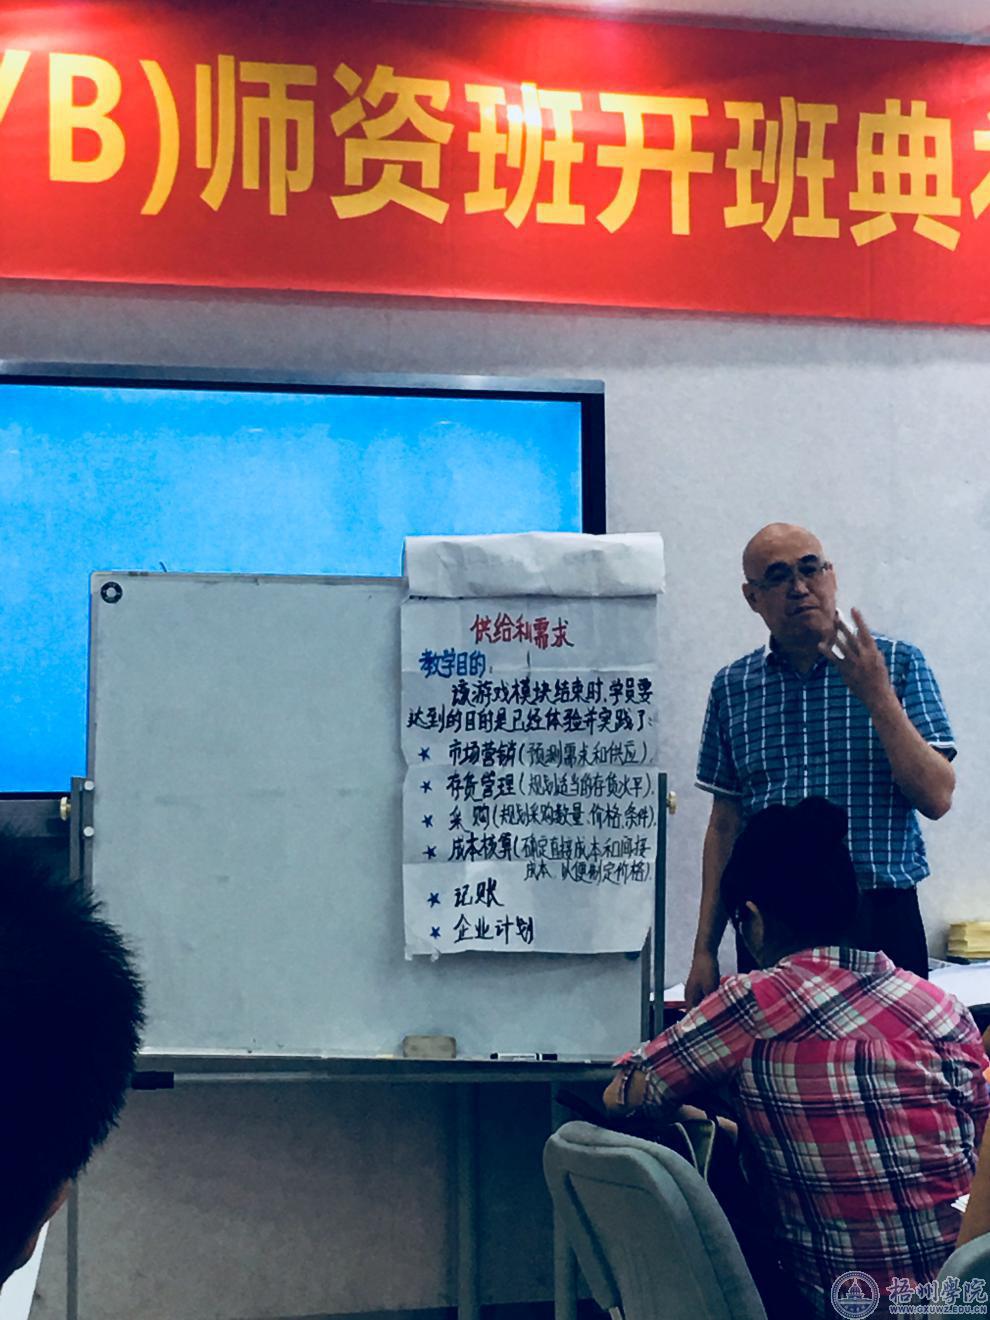 YB)师资班开班典礼
供给和需求
教学目的:
该游戏模块结束时,学员要
达到的目的是已经体验并实践了:
★ 市场营销(预测需求和供应).
★ 存货管理(规划适当的存货水平).
★ 采购(规划采购数量、价格、条件).
★ 成本核算(确定直接成本和间接
成本、以便制定价格).
★ 记账
★ 企业计划
梧州學院
WWW.GXUWZ.EDU.CN